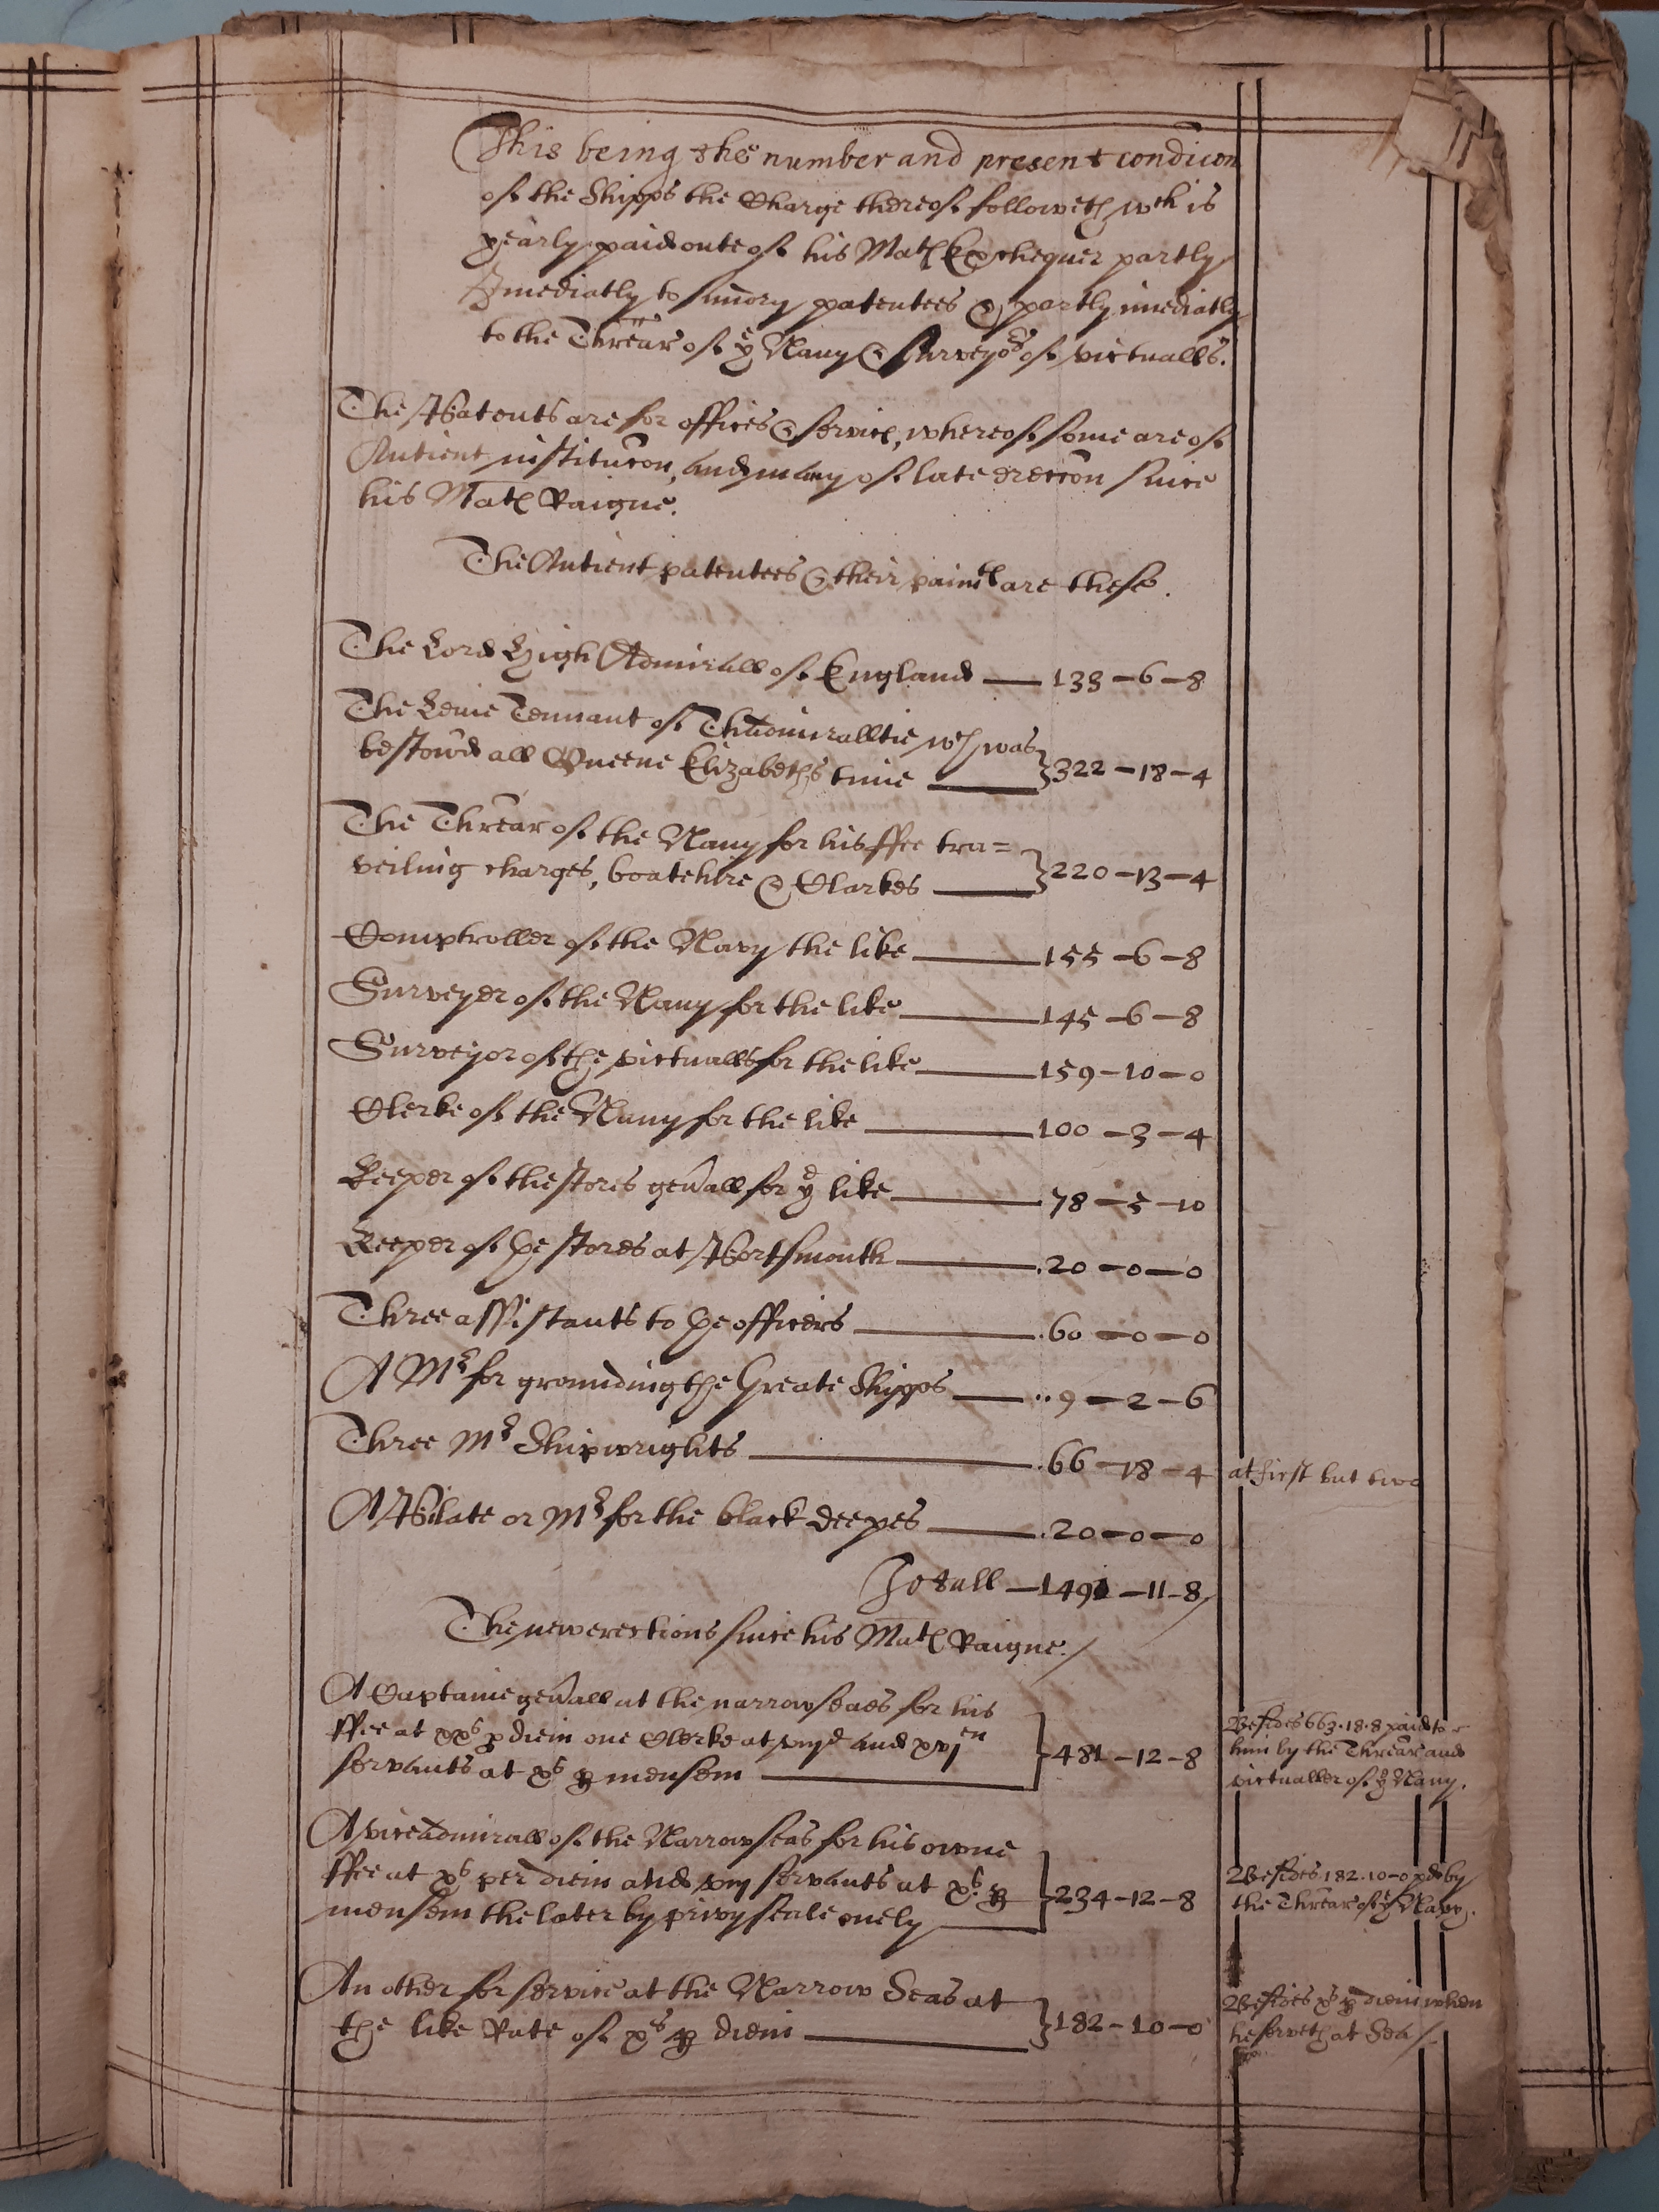 This being the number and present condicon
of the Shipps the Charge thereof followeth wch is
yearly paid oute of his Mats Exchequer partly
Imediatly to sundry patentees & partly imediatly
to the Threãr of ye Navy & Surveyor of victualls.
The Patents are for offices & service, whereof some are of
Antient institucon, and many of late ereccon since
his Mats Raigne.
The Antient patentees & their paimts are these.
The Lord High Admirall of England — 133-6-8
The Leivetennant of Thadmiralltie wch was
bestowd all Queene Elizabeths time — 322-18-4
The Threãr of the Navy for his ffee tra=
veiling charges, boatehire & Clarkes — 220-13-4
Comptroller of the Navy the like — 155-6-8
Surveyer of the Navy for the like — 145-6-8
Surveyor of the victualls for the like — 159-10-0
Clerke of the Navy for the like — 100-3-4
Keeper of the stores genãll for ye like — 78-5-10
Keeper of the stores at Portsmouth — .20-0-0
Three assistants to the officers — .60-0-0
A Mr for grounding the Greate Shipps — ..9-2-6
Three Mr Shipwrights — .66-18-4 at first but two
A Pilate or Mr for the black deepes — .20-0-0
Totall — 1491-11-8/
The new erections since his Mats Raigne./
A Captaine genãll at the narrow seaes for his
ffee at xxs p diem one Clerke at viijd and xvjen
servants at xs p mensem — 481-12-8
Besides 663.18.8 paid to
him by the Threãr and
victualler of ye Navy.
A viceadmirall of the Narrow seas for his owne
ffee at xs per diem and viij servants at xs p
mensem the later by privy seale onely — 234-12-8
Besides 182.10-0 pd by
the Threãr of ye Navy.
An other for service at the Narrow Seas at
the like Rate of xs p diem — 182-10-0
Besides xs p diem when
he serveth at Sea/